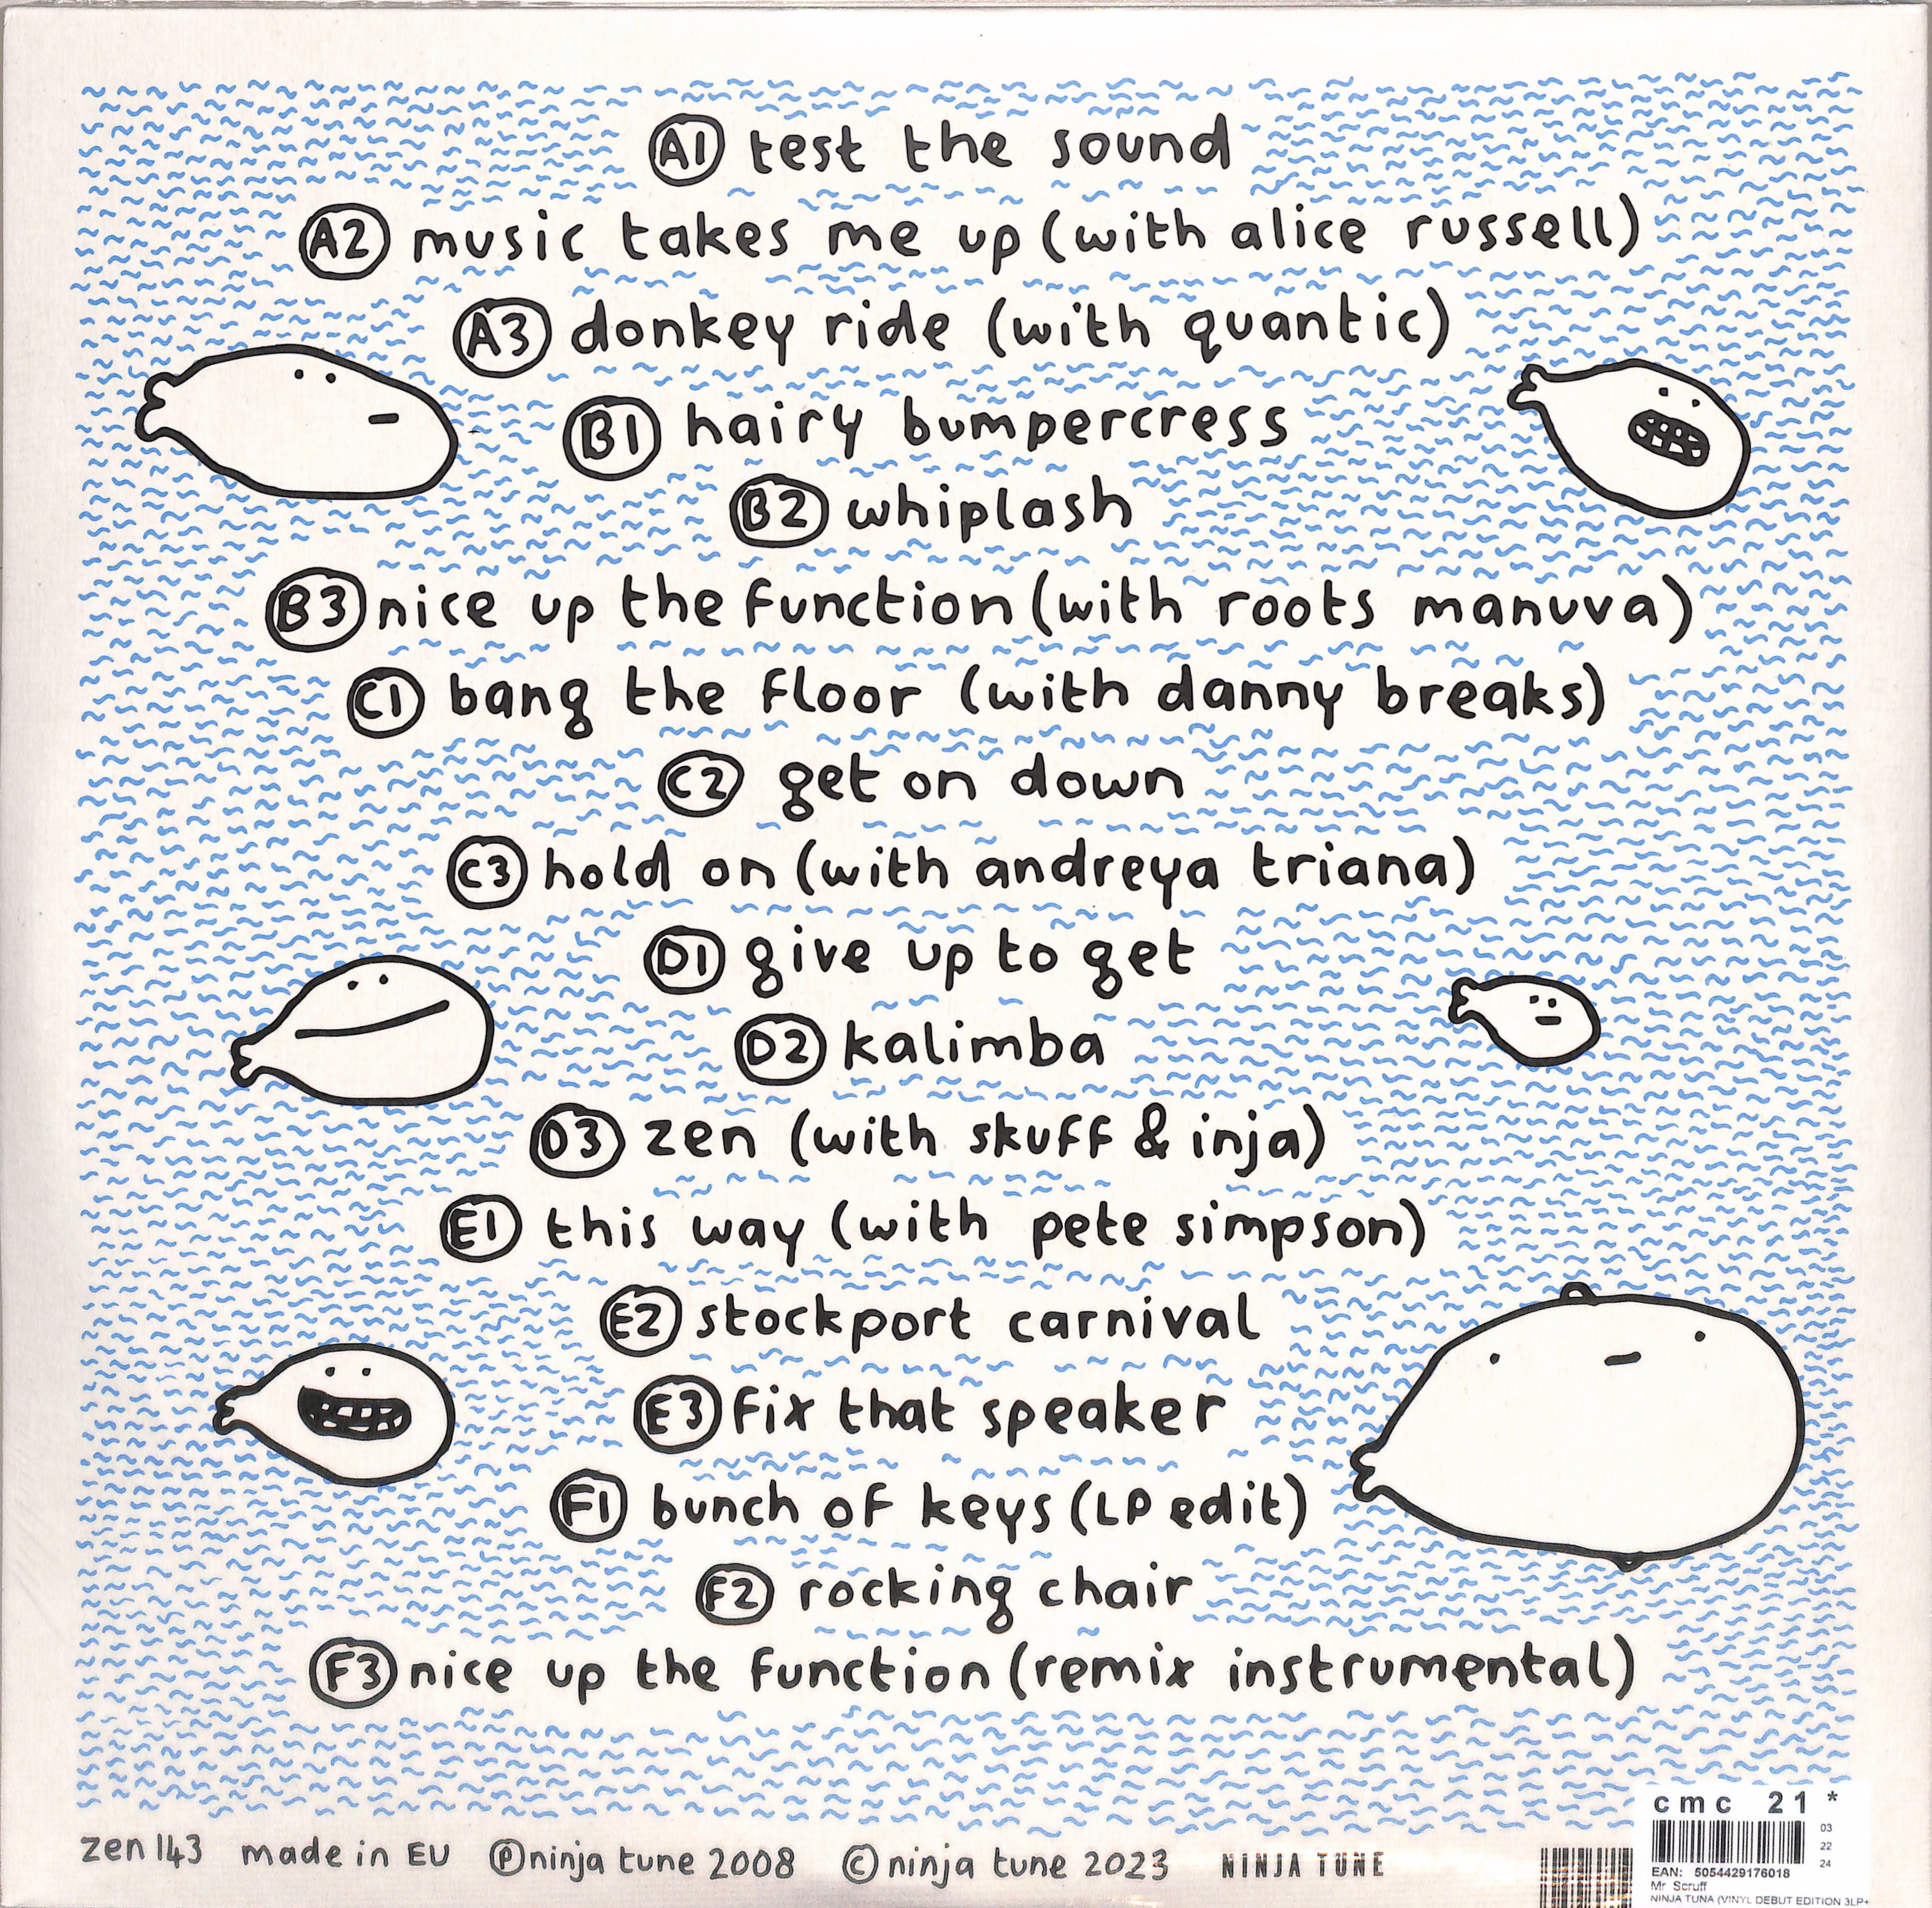 A1 test the sound
A2 music takes me up (with alice russell)
A3 donkey ride (with quantic)
B1 hairy bumpercress
B2 whiplash
B3 nice up the function (with roots manuva)
C1 bang the floor (with danny breaks)
C2 get on down
C3 hold on (with andreya triana)
D1 give up to get
D2 kalimba
D3 zen (with skuff & inja)
E1 this way (with pete simpson)
E2 stockport carnival
E3 fix that speaker
F1 bunch of keys (LP edit)
F2 rocking chair
F3 nice up the function (remix instrumental)
zen 143 made in EU ℗ ninja tune 2008 © ninja tune 2023 NINJA TUNE
cmc 21 *
03
22
24
EAN: 5054429176018
Mr Scruff
NINJA TUNA (VINYL DEBUT EDITION 3LP+